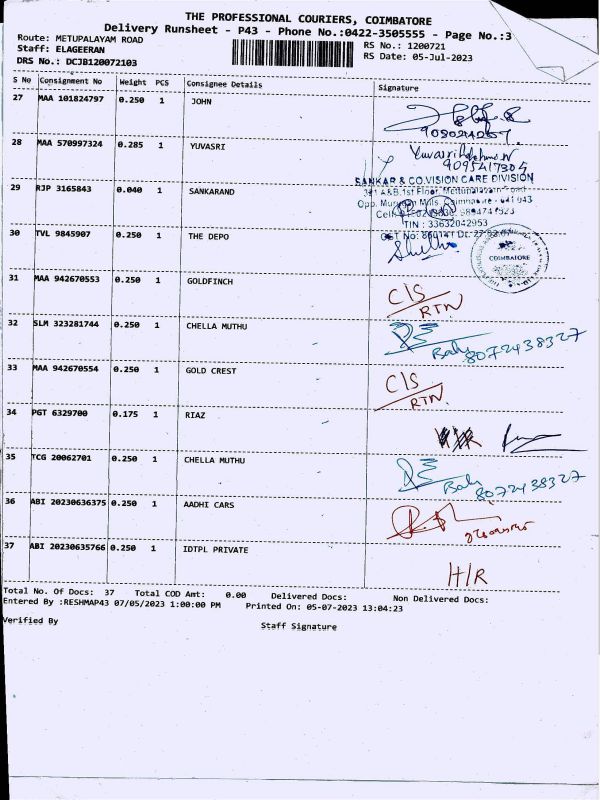 THE PROFESSIONAL COURIERS, COIMBATORE
Delivery Runsheet - P43 - Phone No.:0422-3505555 - Page No.:3
Route: METUPALAYAM ROAD RS No.: 1200721
Staff: ELAGEERAN RS Date: 05-Jul-2023
DRS No.: DCJB120072103
S No Consignment No Weight PCS Consignee Details Signature
27 MAA 101824797 0.250 1 JOHN
28 MAA 570997324 0.285 1 YUVASRI
9095417304
SANKAR & CO.VISION CARE DIVISION
29 RJP 3165843 0.040 1 SANKARAND
341 A&B,1st Floor, Mettupalayam Road
TIN : 33632042953
30 TVL 9845907 0.250 1 THE DEPO
COIMBATORE
31 MAA 942670553 0.250 1 GOLDFINCH
C/S
RTN
32 SLM 323281744 0.250 1 CHELLA MUTHU
8072438327
33 MAA 942670554 0.250 1 GOLD CREST
C/S
RTN
34 PGT 6329700 0.175 1 RIAZ
35 TCG 20062701 0.250 1 CHELLA MUTHU
8072438327
36 ABI 20230636375 0.250 1 AADHI CARS
37 ABI 20230635766 0.250 1 IDTPL PRIVATE
H/R
Total No. Of Docs: 37 Total COD Amt: 0.00 Delivered Docs: Non Delivered Docs:
Entered By :RESHMAP43 07/05/2023 1:00:00 PM Printed On: 05-07-2023 13:04:23
Verified By Staff Signature